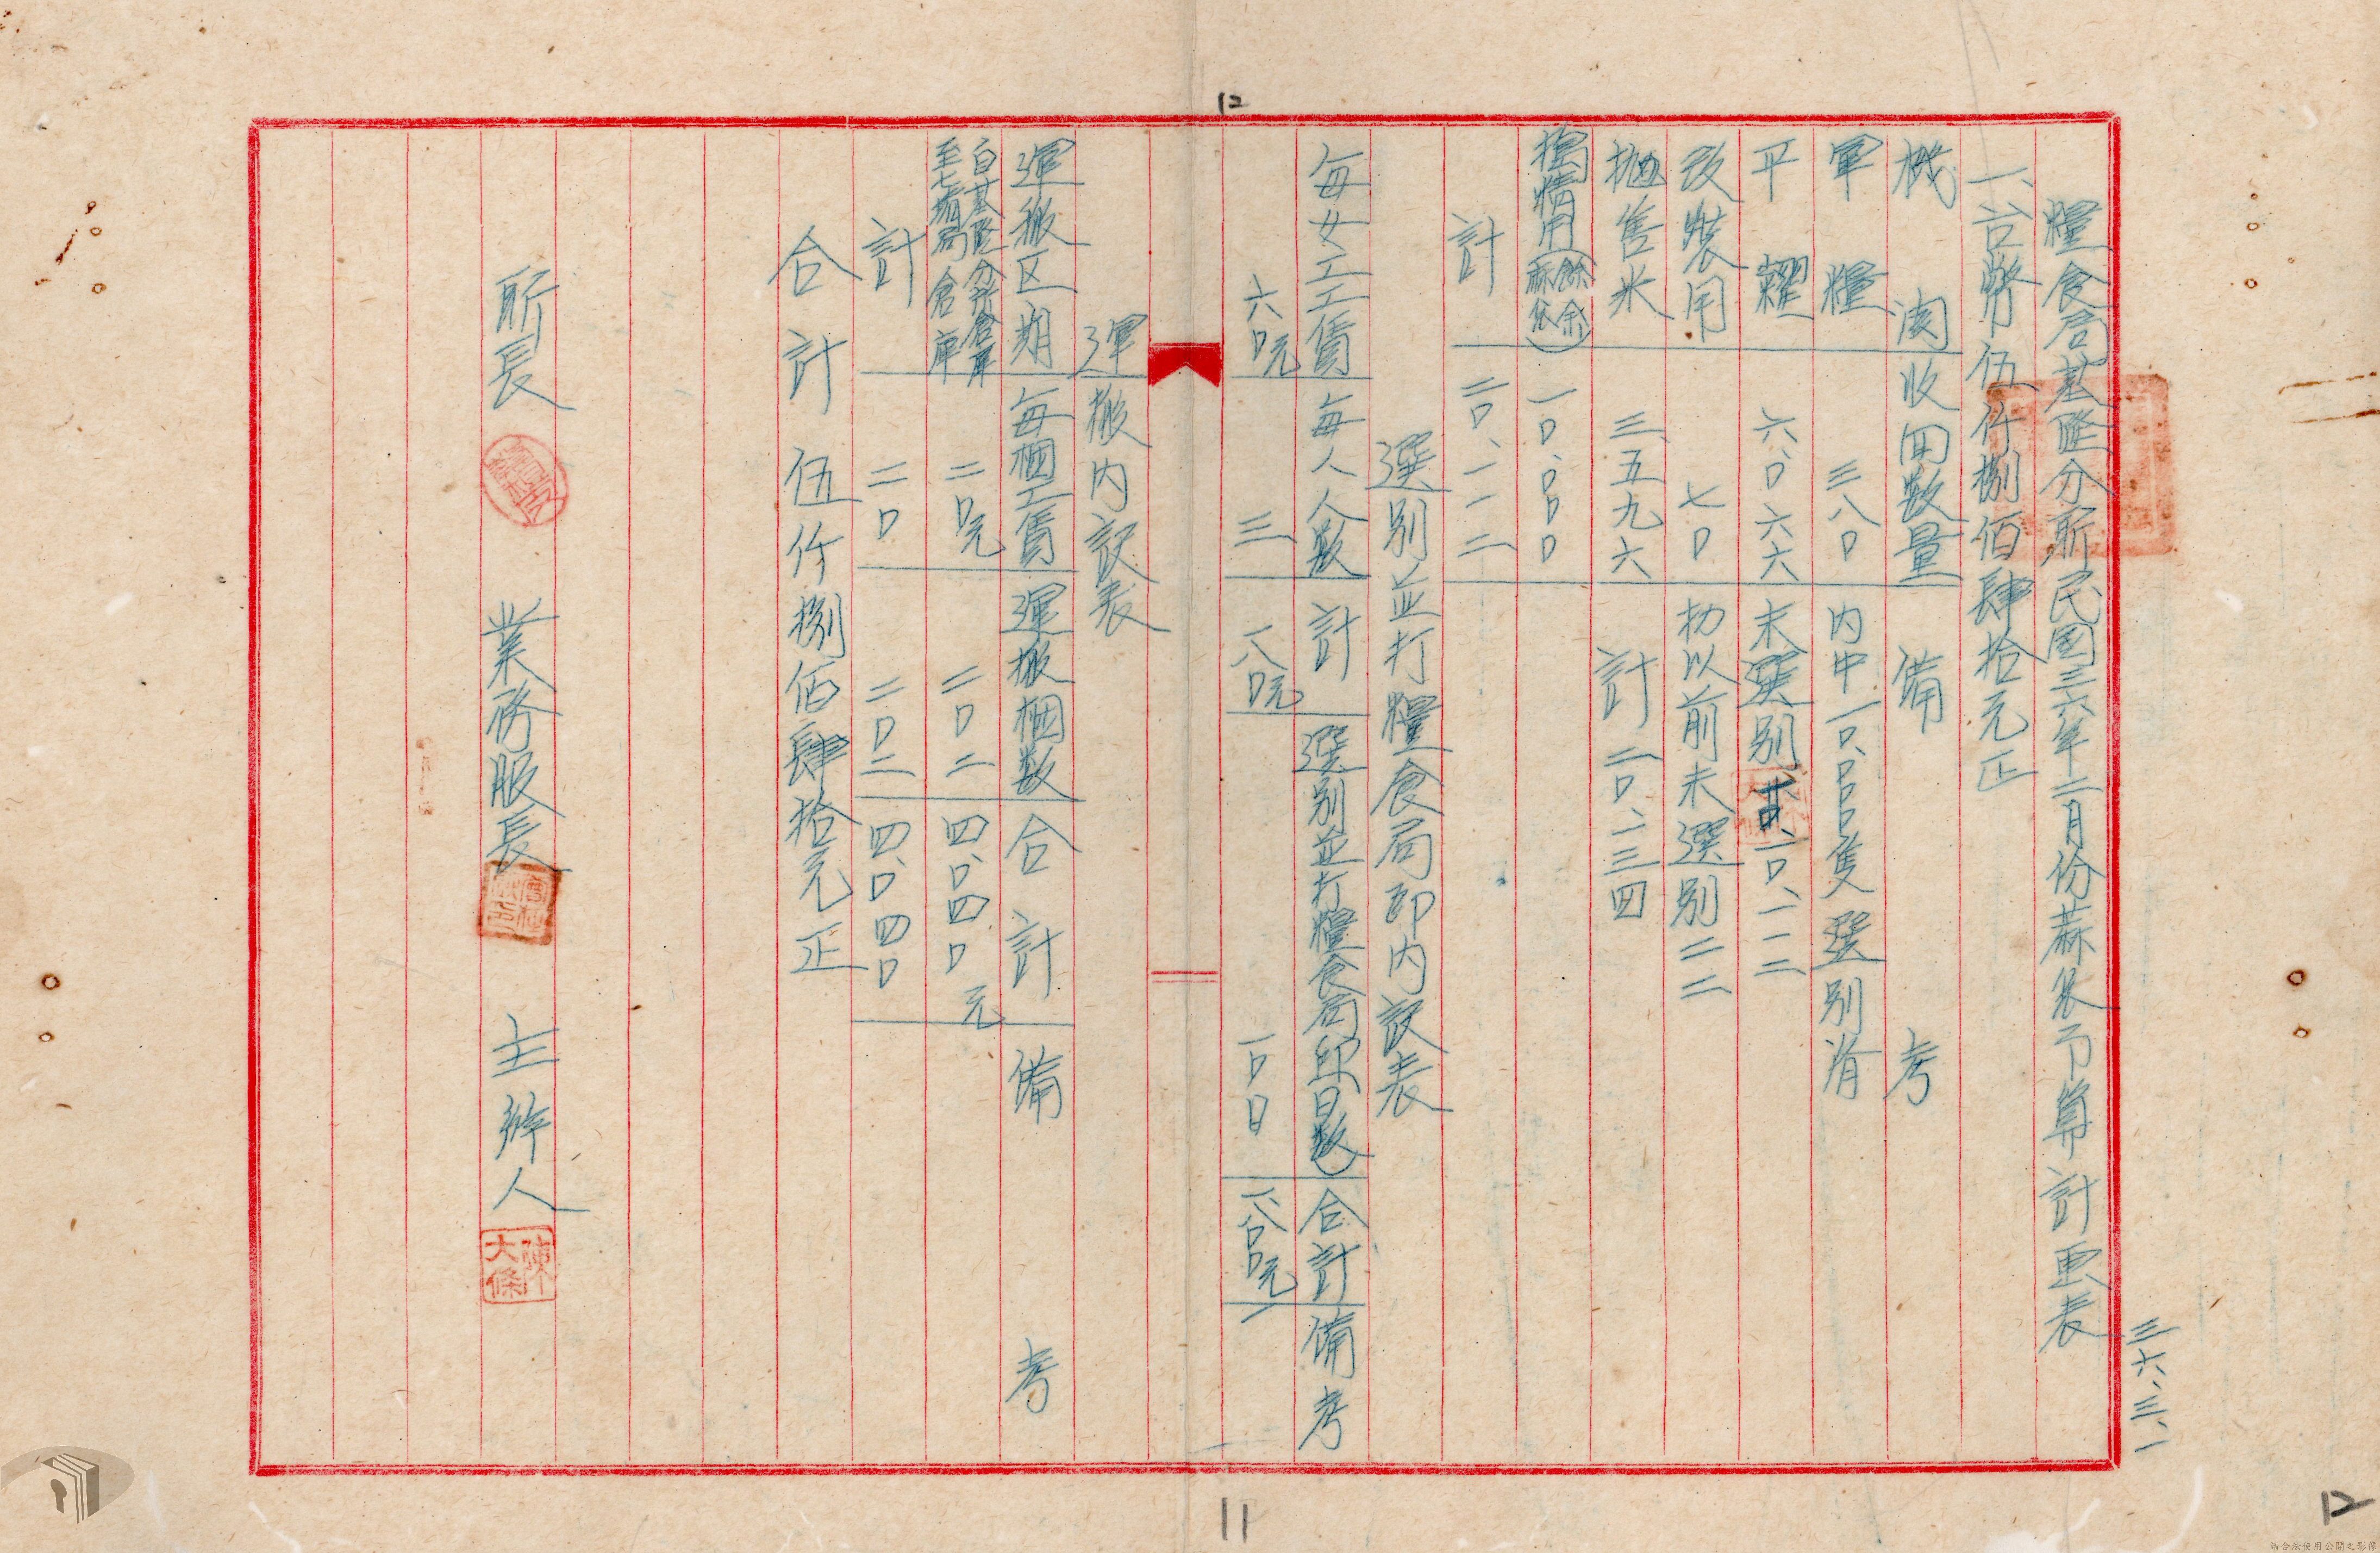 三六、三、一
糧食局基隆分所民國三六年二月份蔴袋予算計画表
一、台幣伍仟捌佰肆拾元正
機関 收回數量 備考
軍糧 三八〇 內中一〇、〇〇〇隻選別済
平糶 六、〇六六 未選別 一〇、一一二
改裝用 七〇 初以前未選別 二二
拋售米 三五九六 計二〇、一三四
一〇、〇〇〇
計 二〇、一一二
選別並打糧食局印內訳表
每女工工賃 每人人數 計 選別並打糧食局印日數 合計 備考
六〇元 三 一八〇元 一〇日 一、八〇〇元
運搬內訳表
運搬区期 每梱工賃 運搬梱數 合計 備考
自基隆分所倉庫至七堵局倉庫 二〇元 二〇二 四、〇四〇元
計 二〇 二〇二 四、〇四〇
合計 伍仟捌佰肆拾元正
所長 業務股長 主辦人 陳大條
12
11
12
請合法使用公開之影像